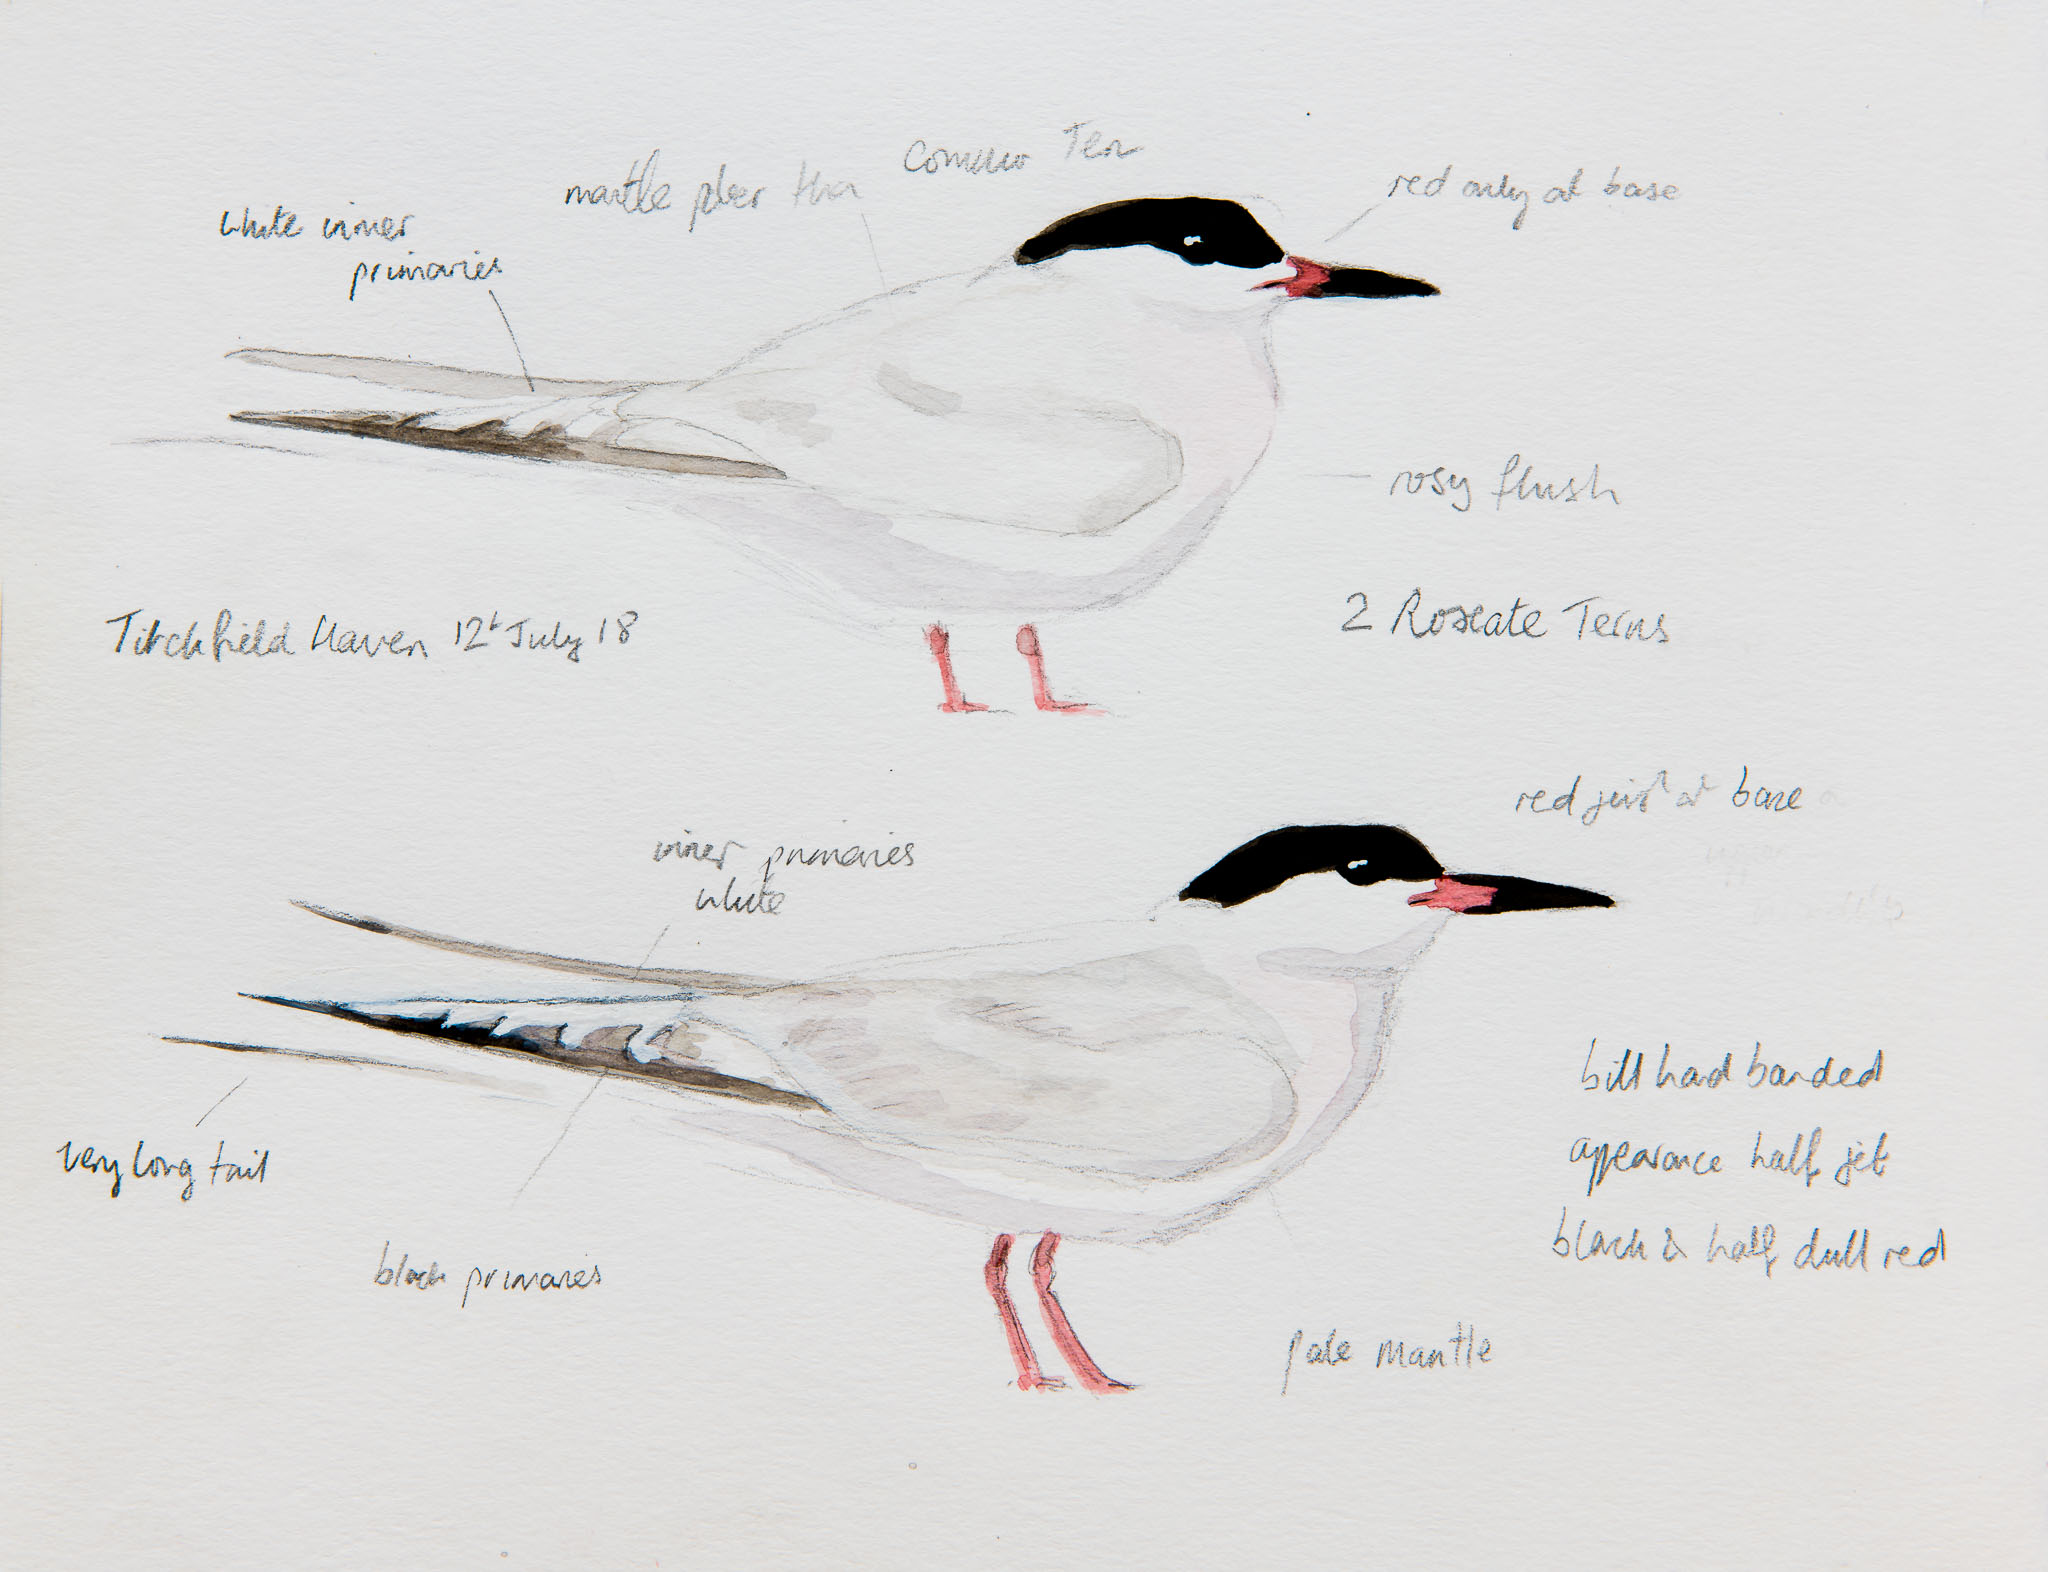 Common Tern
mantle paler than
red only at base
white inner
primaries
rosy flush
Titchfield Haven 12t July 18
2 Roseate Terns
red just at base
inner primaries
white
bill had banded
appearance half jet
black & half dull red
very long tail
black primaries
pale mantle